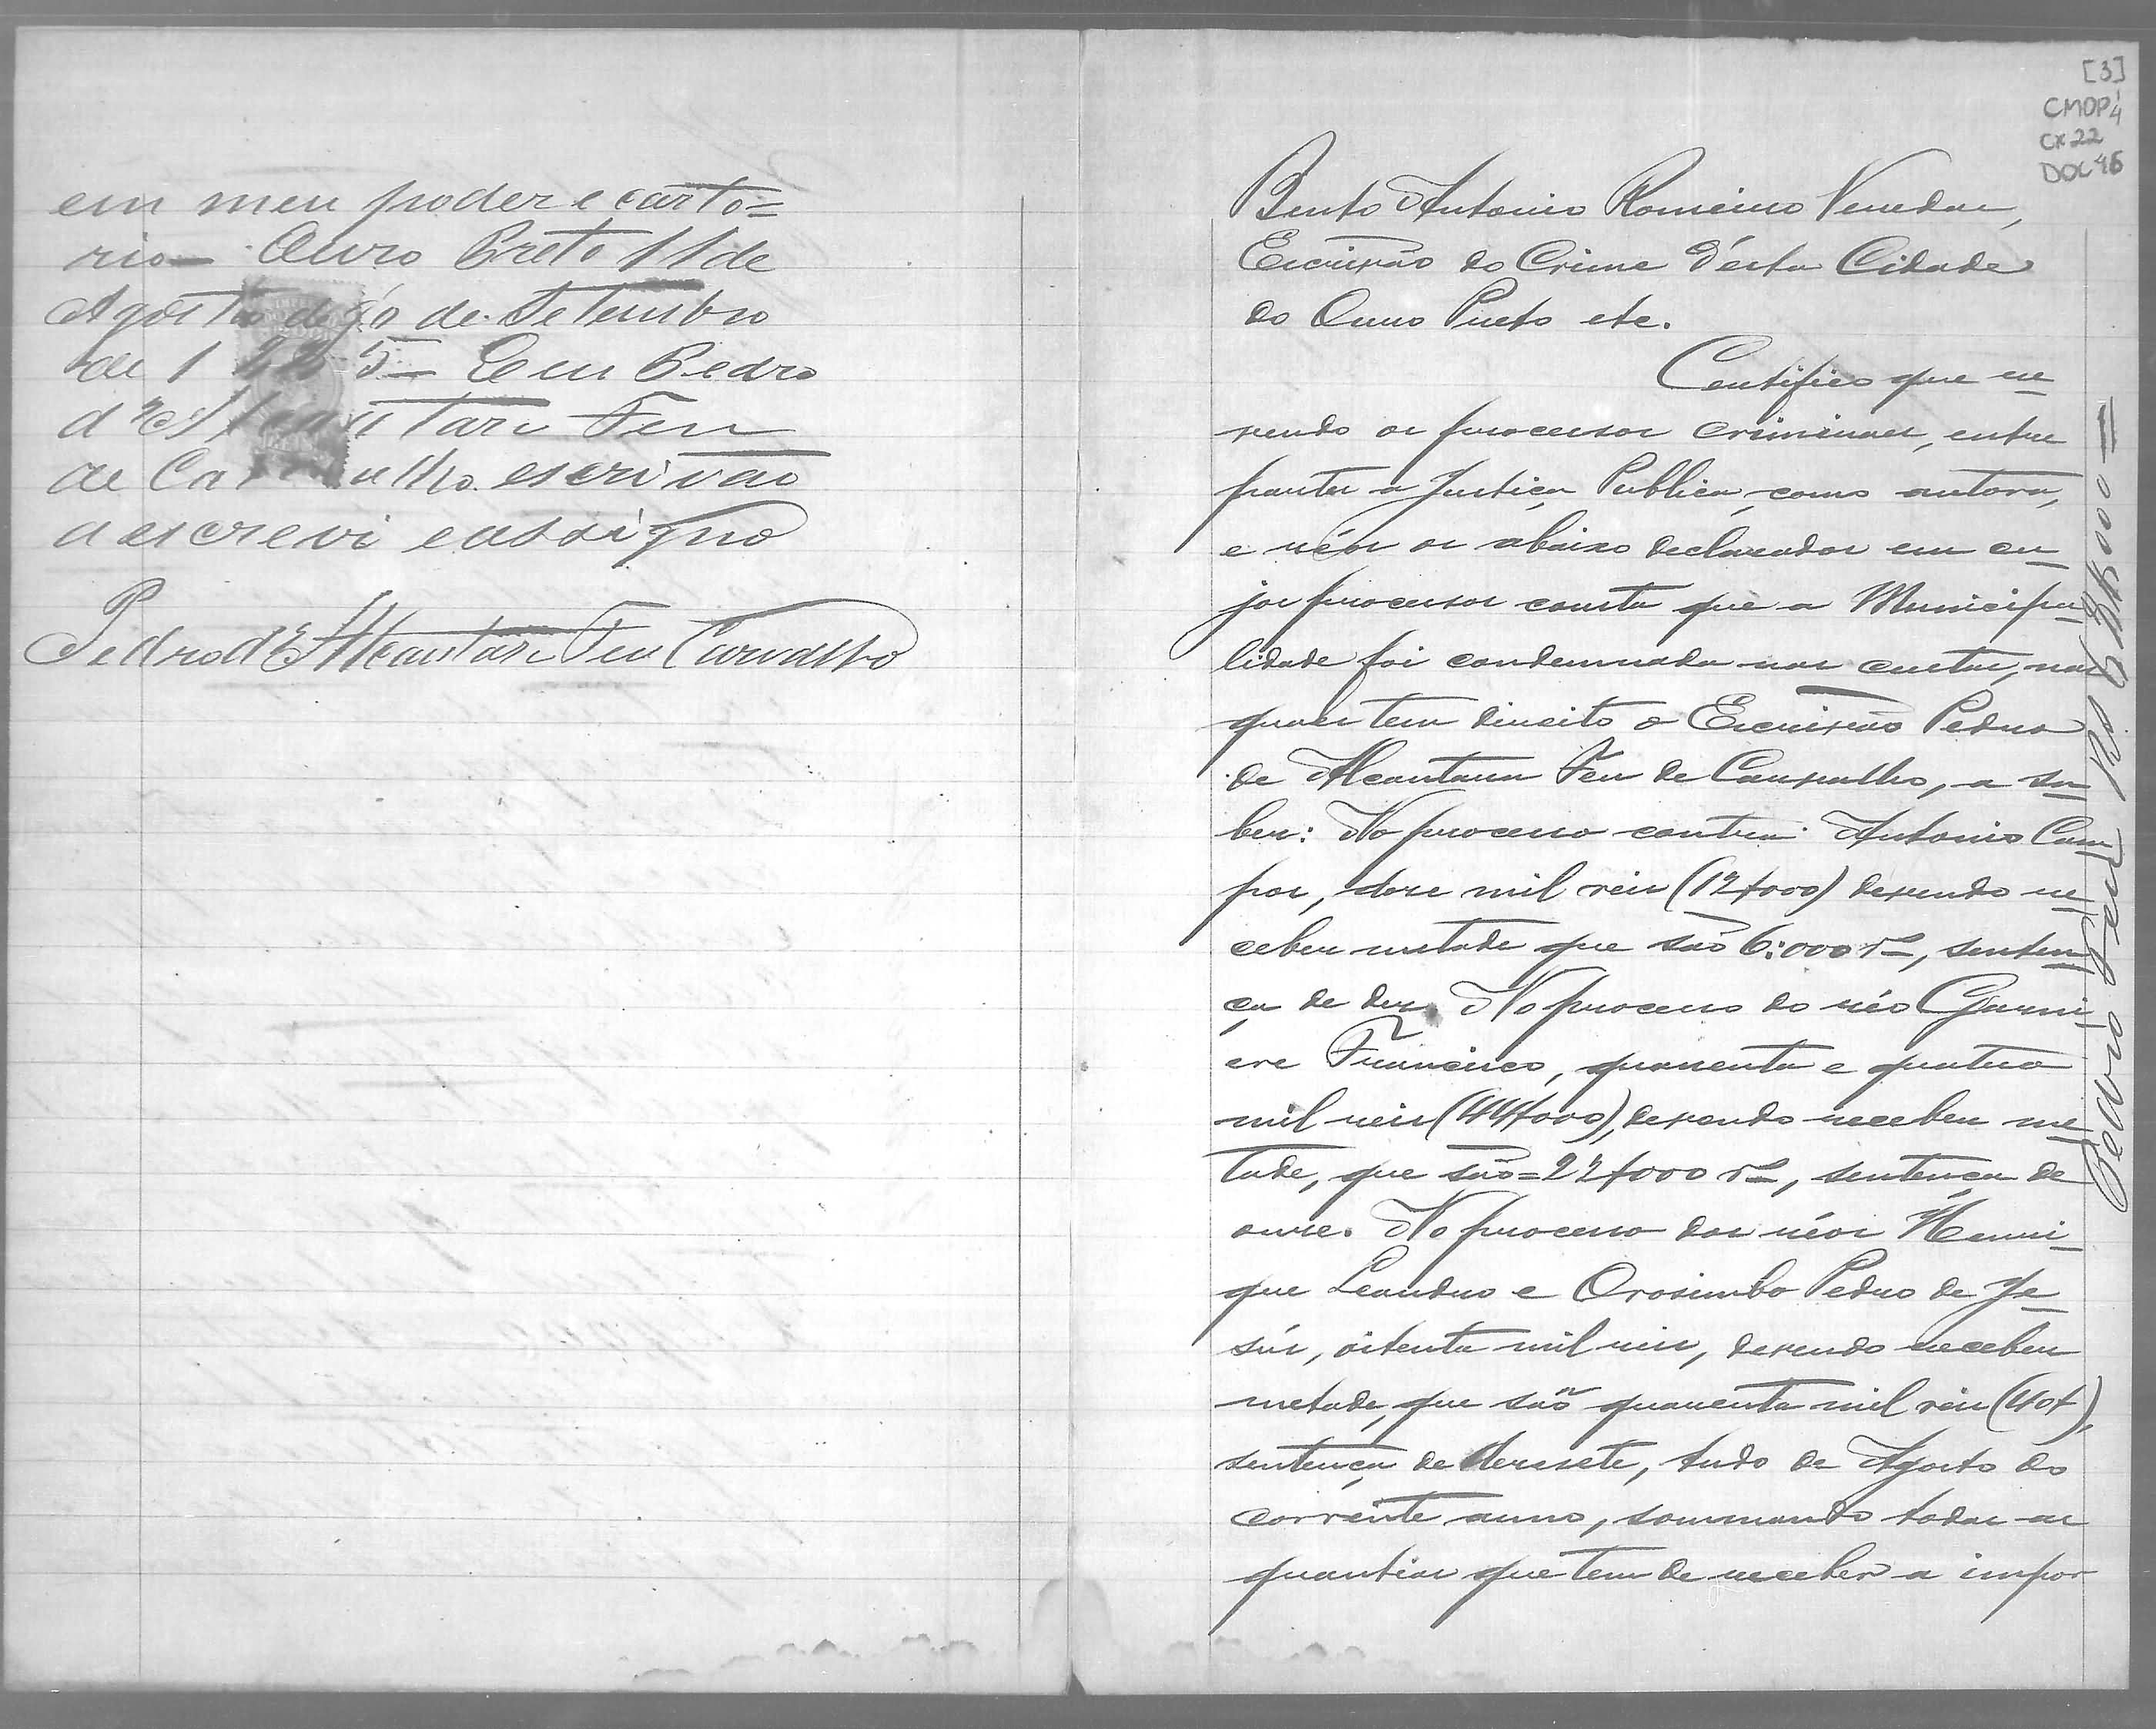 em meu poder e carto=
rio — Ouro Preto 11 de
Agosto digo de Setembro
de 1885 — Eu Pedro
d'Alcantara Feu
de Carvalho escrivão
a escrevi e assigno
Pedro d'Alcantara Feu Carvalho
[3]
CMOP
CX 22
DOC 46
Bento Antonio Romeiro Veredas,
Escrivão do Crime d'ésta Cidade
do Ouro Preto etc.
Certifico que re-
vendo os processos criminaes, entre
partes a Justiça Publica, como autora,
e réos os abaixo declarados em cu-
jos processos consta que a Municipa-
lidade foi condemnada nas custas, nas
quaes tem direito o Escrivão Pedro
de Alcantara Feu de Carvalho, a sa-
ber: No processo contra Antonio Cam
pos, doze mil reis (12$000) devendo re-
ceber metade que são 6:000 rs, senten-
ça de dez. No processo do réo
Francisco, quarenta e quatro
mil reis (44$000), devendo receber me-
tade, que são = 22$000 rs, sentença de
onze. No processo dos réos Henri-
que Leandro e Orosimbo Pedro de Je-
sús, oitenta mil reis, devendo receber
metade, que são quarenta mil reis (40$),
sentença de dezesete, tudo de Agosto do
corrente anno, sommando todas as
quantias que tem de receber a impor
Pedro Feu Rs 68$000